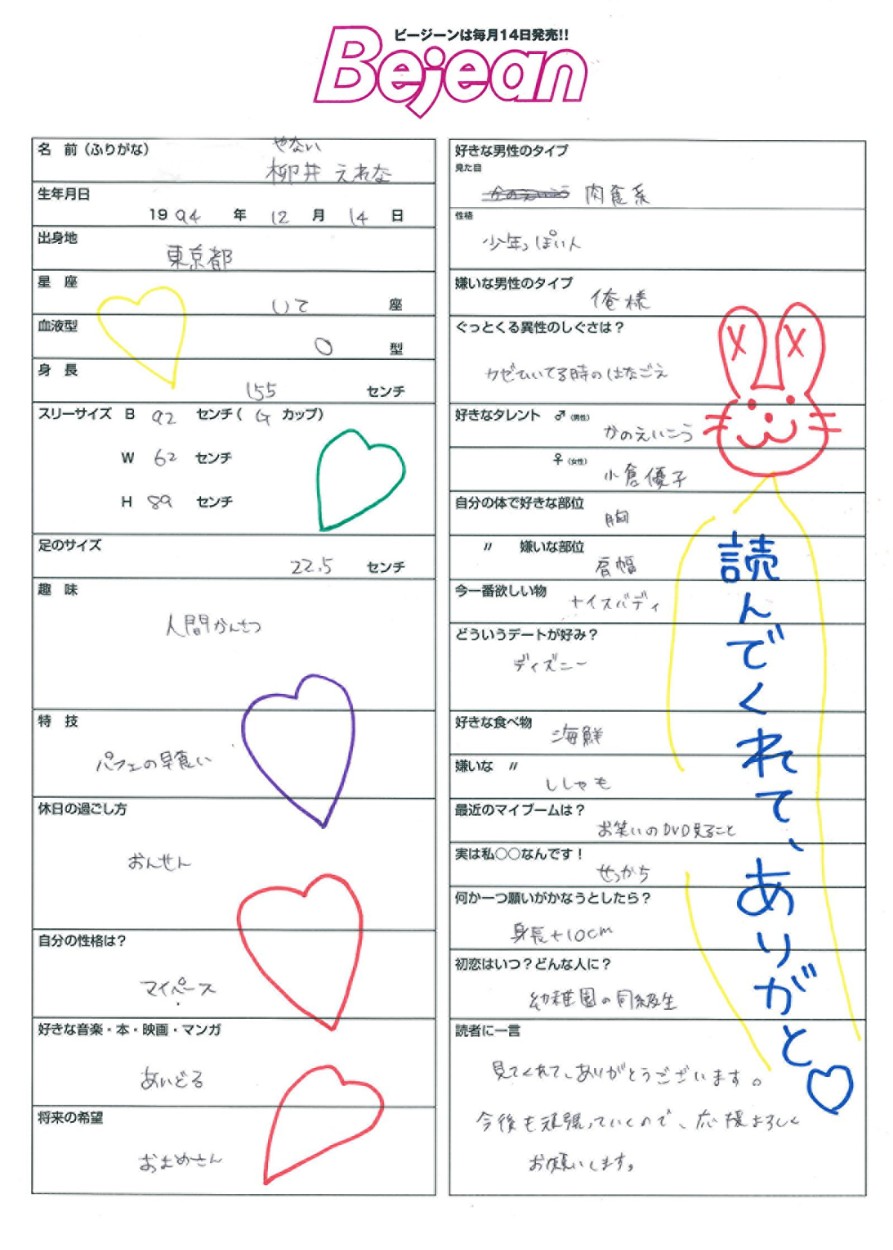 ビージーンは毎月14日発売!!
Bejean
名 前（ふりがな）
やない
柳井 えれな
生年月日
1994 年 12 月 14 日
出身地
東京都
星 座
いて 座
血液型
O 型
身 長
155 センチ
スリーサイズ B 92 センチ（ G カップ）
W 62 センチ
H 89 センチ
足のサイズ
22.5 センチ
趣 味
人間かんさつ
特 技
パフェの早食い
休日の過ごし方
おんせん
自分の性格は？
マイペース
好きな音楽・本・映画・マンガ
あいどる
将来の希望
およめさん
好きな男性のタイプ
見た目
肉食系
性格
少年っぽい人
嫌いな男性のタイプ
俺様
ぐっとくる異性のしぐさは？
カゼひいてる時のはなごえ
好きなタレント ♂（男性）
かのえいこう
♀（女性）
小倉優子
自分の体で好きな部位
胸
〃 嫌いな部位
肩幅
今一番欲しい物
ナイスバディ
どういうデートが好み？
ディズニー
好きな食べ物
海鮮
嫌いな 〃
ししゃも
最近のマイブームは？
お笑いのDVD見ること
実は私○○なんです！
せっかち
何か一つ願いがかなうとしたら？
身長+10cm
初恋はいつ？どんな人に？
幼稚園の同級生
読者に一言
見てくれて、ありがとうございます。
今後も頑張っていくので、応援よろしく
お願いします。
読んでくれて、ありがと♡